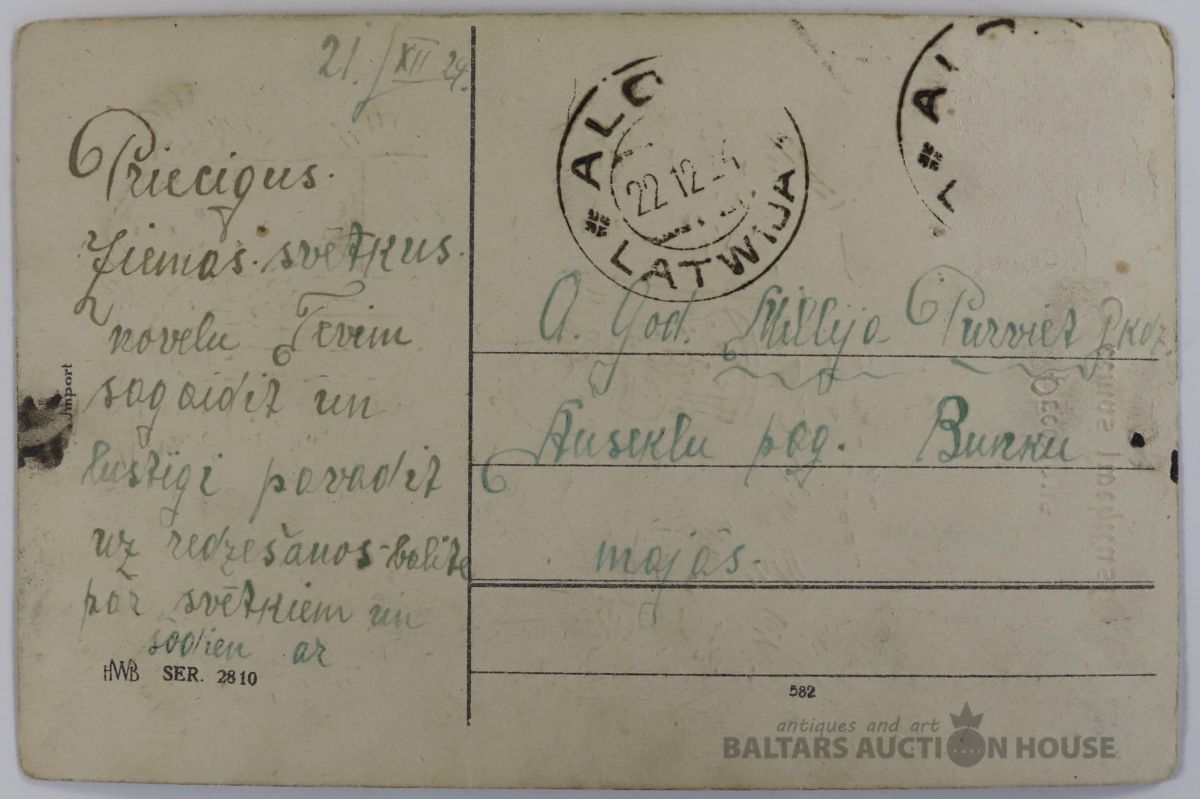 21. XII 29.
Priecigus.
Ziemas. svētkus.
novelu Tevim
sagaidit un
lustigi pavadit
uz redzešanos
pār svētkiem un
šodien ar
Import
HWB SER. 2810
ALO
22 12
LATWIJA
AL
A. God. Millija Purviet
Auseklu pag. Bunku
majās.
582
antiques and art
BALTARS AUCTION HOUSE